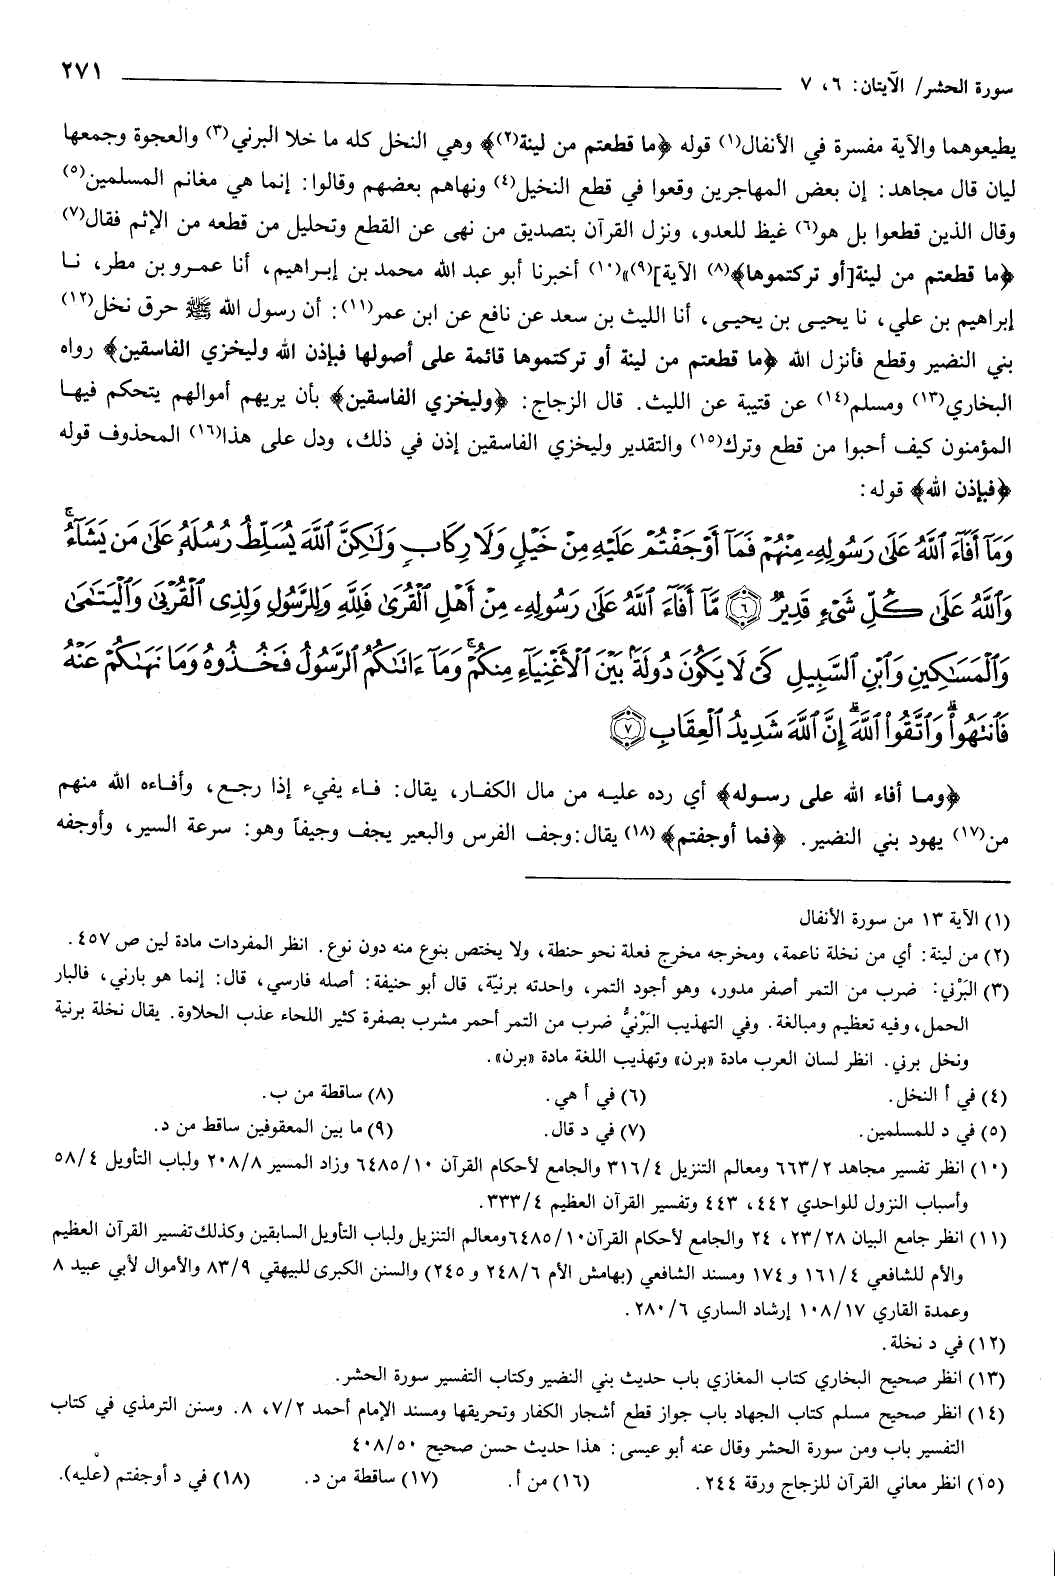 سورة الحشر/ الآيتان: ٦، ٧
٢٧١
يطيعوهما والآية مفسرة في الأنفال(١) قوله ﴿ما قطعتم من لينة(٢)﴾ وهي النخل كله ما خلا البرني(٣) والعجوة وجمعها
ليان قال مجاهد: إن بعض المهاجرين وقعوا في قطع النخيل(٤) ونهاهم بعضهم وقالوا: إنما هي مغانم المسلمين(٥)
وقال الذين قطعوا بل هو(٦) غيظ للعدو، ونزل القرآن بتصديق من نهى عن القطع وتحليل من قطعه من الإثم فقال(٧)
﴿ما قطعتم من لينة[أو تركتموها﴾(٨) الآية](٩)»(١٠) أخبرنا أبو عبد الله محمد بن إبراهيم، أنا عمرو بن مطر، نا
إبراهيم بن علي، نا يحيى بن يحيى، أنا الليث بن سعد عن نافع عن ابن عمر(١١): أن رسول الله ﷺ حرق نخل(١٢)
بني النضير وقطع فأنزل الله ﴿ما قطعتم من لينة أو تركتموها قائمة على أصولها فبإذن الله وليخزي الفاسقين﴾ رواه
البخاري(١٣) ومسلم(١٤) عن قتيبة عن الليث. قال الزجاج: ﴿وليخزي الفاسقين﴾ بأن يريهم أموالهم يتحكم فيها
المؤمنون كيف أحبوا من قطع وترك(١٥) والتقدير وليخزي الفاسقين إذن في ذلك، ودل على هذا(١٦) المحذوف قوله
﴿فبإذن الله﴾ قوله:
وَمَآ أَفَآءَ ٱللَّهُ عَلَىٰ رَسُولِهِۦ مِنْهُمْ فَمَآ أَوْجَفْتُمْ عَلَيْهِ مِنْ خَيْلٍ وَلَا رِكَابٍ وَلَٰكِنَّ ٱللَّهَ يُسَلِّطُ رُسُلَهُۥ عَلَىٰ مَن يَشَآءُۚ
وَٱللَّهُ عَلَىٰ كُلِّ شَىْءٍ قَدِيرٌ ٦ مَّآ أَفَآءَ ٱللَّهُ عَلَىٰ رَسُولِهِۦ مِنْ أَهْلِ ٱلْقُرَىٰ فَلِلَّهِ وَلِلرَّسُولِ وَلِذِى ٱلْقُرْبَىٰ وَٱلْيَتَٰمَىٰ
وَٱلْمَسَٰكِينِ وَٱبْنِ ٱلسَّبِيلِ كَىْ لَا يَكُونَ دُولَةًۢ بَيْنَ ٱلْأَغْنِيَآءِ مِنكُمْۚ وَمَآ ءَاتَىٰكُمُ ٱلرَّسُولُ فَخُذُوهُ وَمَا نَهَىٰكُمْ عَنْهُ
فَٱنتَهُوا۟ۚ وَٱتَّقُوا۟ ٱللَّهَۖ إِنَّ ٱللَّهَ شَدِيدُ ٱلْعِقَابِ ٧
﴿وما أفاء الله على رسوله﴾ أي رده عليه من مال الكفار، يقال: فاء يفيء إذا رجع، وأفاءه الله منهم
من(١٧) يهود بني النضير. ﴿فما أوجفتم﴾(١٨) يقال: وجف الفرس والبعير يجف وجيفاً وهو: سرعة السير، وأوجفه
(١) الآية ١٣ من سورة الأنفال
(٢) من لينة: أي من نخلة ناعمة، ومخرجه مخرج فعلة نحو حنطة، ولا يختص بنوع منه دون نوع. انظر المفردات مادة لين ص ٤٥٧.
(٣) البَرْني: ضرب من التمر أصفر مدور، وهو أجود التمر، واحدته برنيّة، قال أبو حنيفة: أصله فارسي، قال: إنما هو بارني، فالبار
الحمل، وفيه تعظيم ومبالغة. وفي التهذيب البَرْنيُّ ضرب من التمر أحمر مشرب بصفرة كثير اللحاء عذب الحلاوة. يقال نخلة برنية
ونخل برني. انظر لسان العرب مادة «برن» وتهذيب اللغة مادة «برن».
(٤) في أ النخل. (٦) في أ هي. (٨) ساقطة من ب.
(٥) في د للمسلمين. (٧) في د قال. (٩) ما بين المعقوفين ساقط من د.
(١٠) انظر تفسير مجاهد ٦٦٣/٢ ومعالم التنزيل ٣١٦/٤ والجامع لأحكام القرآن ٦٤٨٥/١٠ وزاد المسير ٢٠٨/٨ ولباب التأويل ٥٨/٤
وأسباب النزول للواحدي ٤٤٢، ٤٤٣ وتفسير القرآن العظيم ٣٣٣/٤.
(١١) انظر جامع البيان ٢٣/٢٨، ٢٤ والجامع لأحكام القرآن ٦٤٨٥/١٠ ومعالم التنزيل ولباب التأويل السابقين وكذلك تفسير القرآن العظيم
والأم للشافعي ١٦١/٤ و١٧٤ ومسند الشافعي (بهامش الأم ٢٤٨/٦ و ٢٤٥) والسنن الكبرى للبيهقي ٨٣/٩ والأموال لأبي عبيد ٨
وعمدة القاري ١٠٨/١٧ إرشاد الساري ٢٨٠/٦.
(١٢) في د نخلة.
(١٣) انظر صحيح البخاري كتاب المغازي باب حديث بني النضير وكتاب التفسير سورة الحشر.
(١٤) انظر صحيح مسلم كتاب الجهاد باب جواز قطع أشجار الكفار وتحريقها ومسند الإمام أحمد ٧/٢، ٨. وسنن الترمذي في كتاب
التفسير باب ومن سورة الحشر وقال عنه أبو عيسى: هذا حديث حسن صحيح ٤٠٨/٥٠
(١٥) انظر معاني القرآن للزجاج ورقة ٢٤٤. (١٦) من أ. (١٧) ساقطة من د. (١٨) في د أوجفتم (عليه).